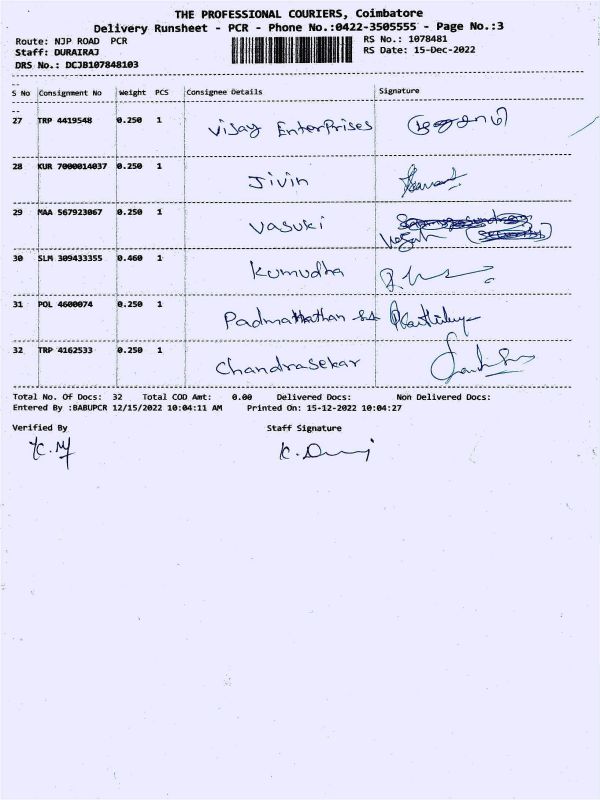 THE PROFESSIONAL COURIERS, Coimbatore
Delivery Runsheet - PCR - Phone No.:0422-3505555 - Page No.:3
Route: NJP ROAD PCR RS No.: 1078481
Staff: DURAIRAJ RS Date: 15-Dec-2022
DRS No.: DCJB107848103
S No Consignment No Weight PCS Consignee Details Signature
27 TRP 4419548 0.250 1 Vijay Enterprises
28 KUR 7000014037 0.250 1 Jivin
29 MAA 567923067 0.250 1 Vasuki
30 SLM 309433355 0.460 1 Kumudha
31 POL 4600074 0.250 1 Padma
32 TRP 4162533 0.250 1 Chandrasekar
Total No. Of Docs: 32 Total COD Amt: 0.00 Delivered Docs: Non Delivered Docs:
Entered By :BABUPCR 12/15/2022 10:04:11 AM Printed On: 15-12-2022 10:04:27
Verified By Staff Signature